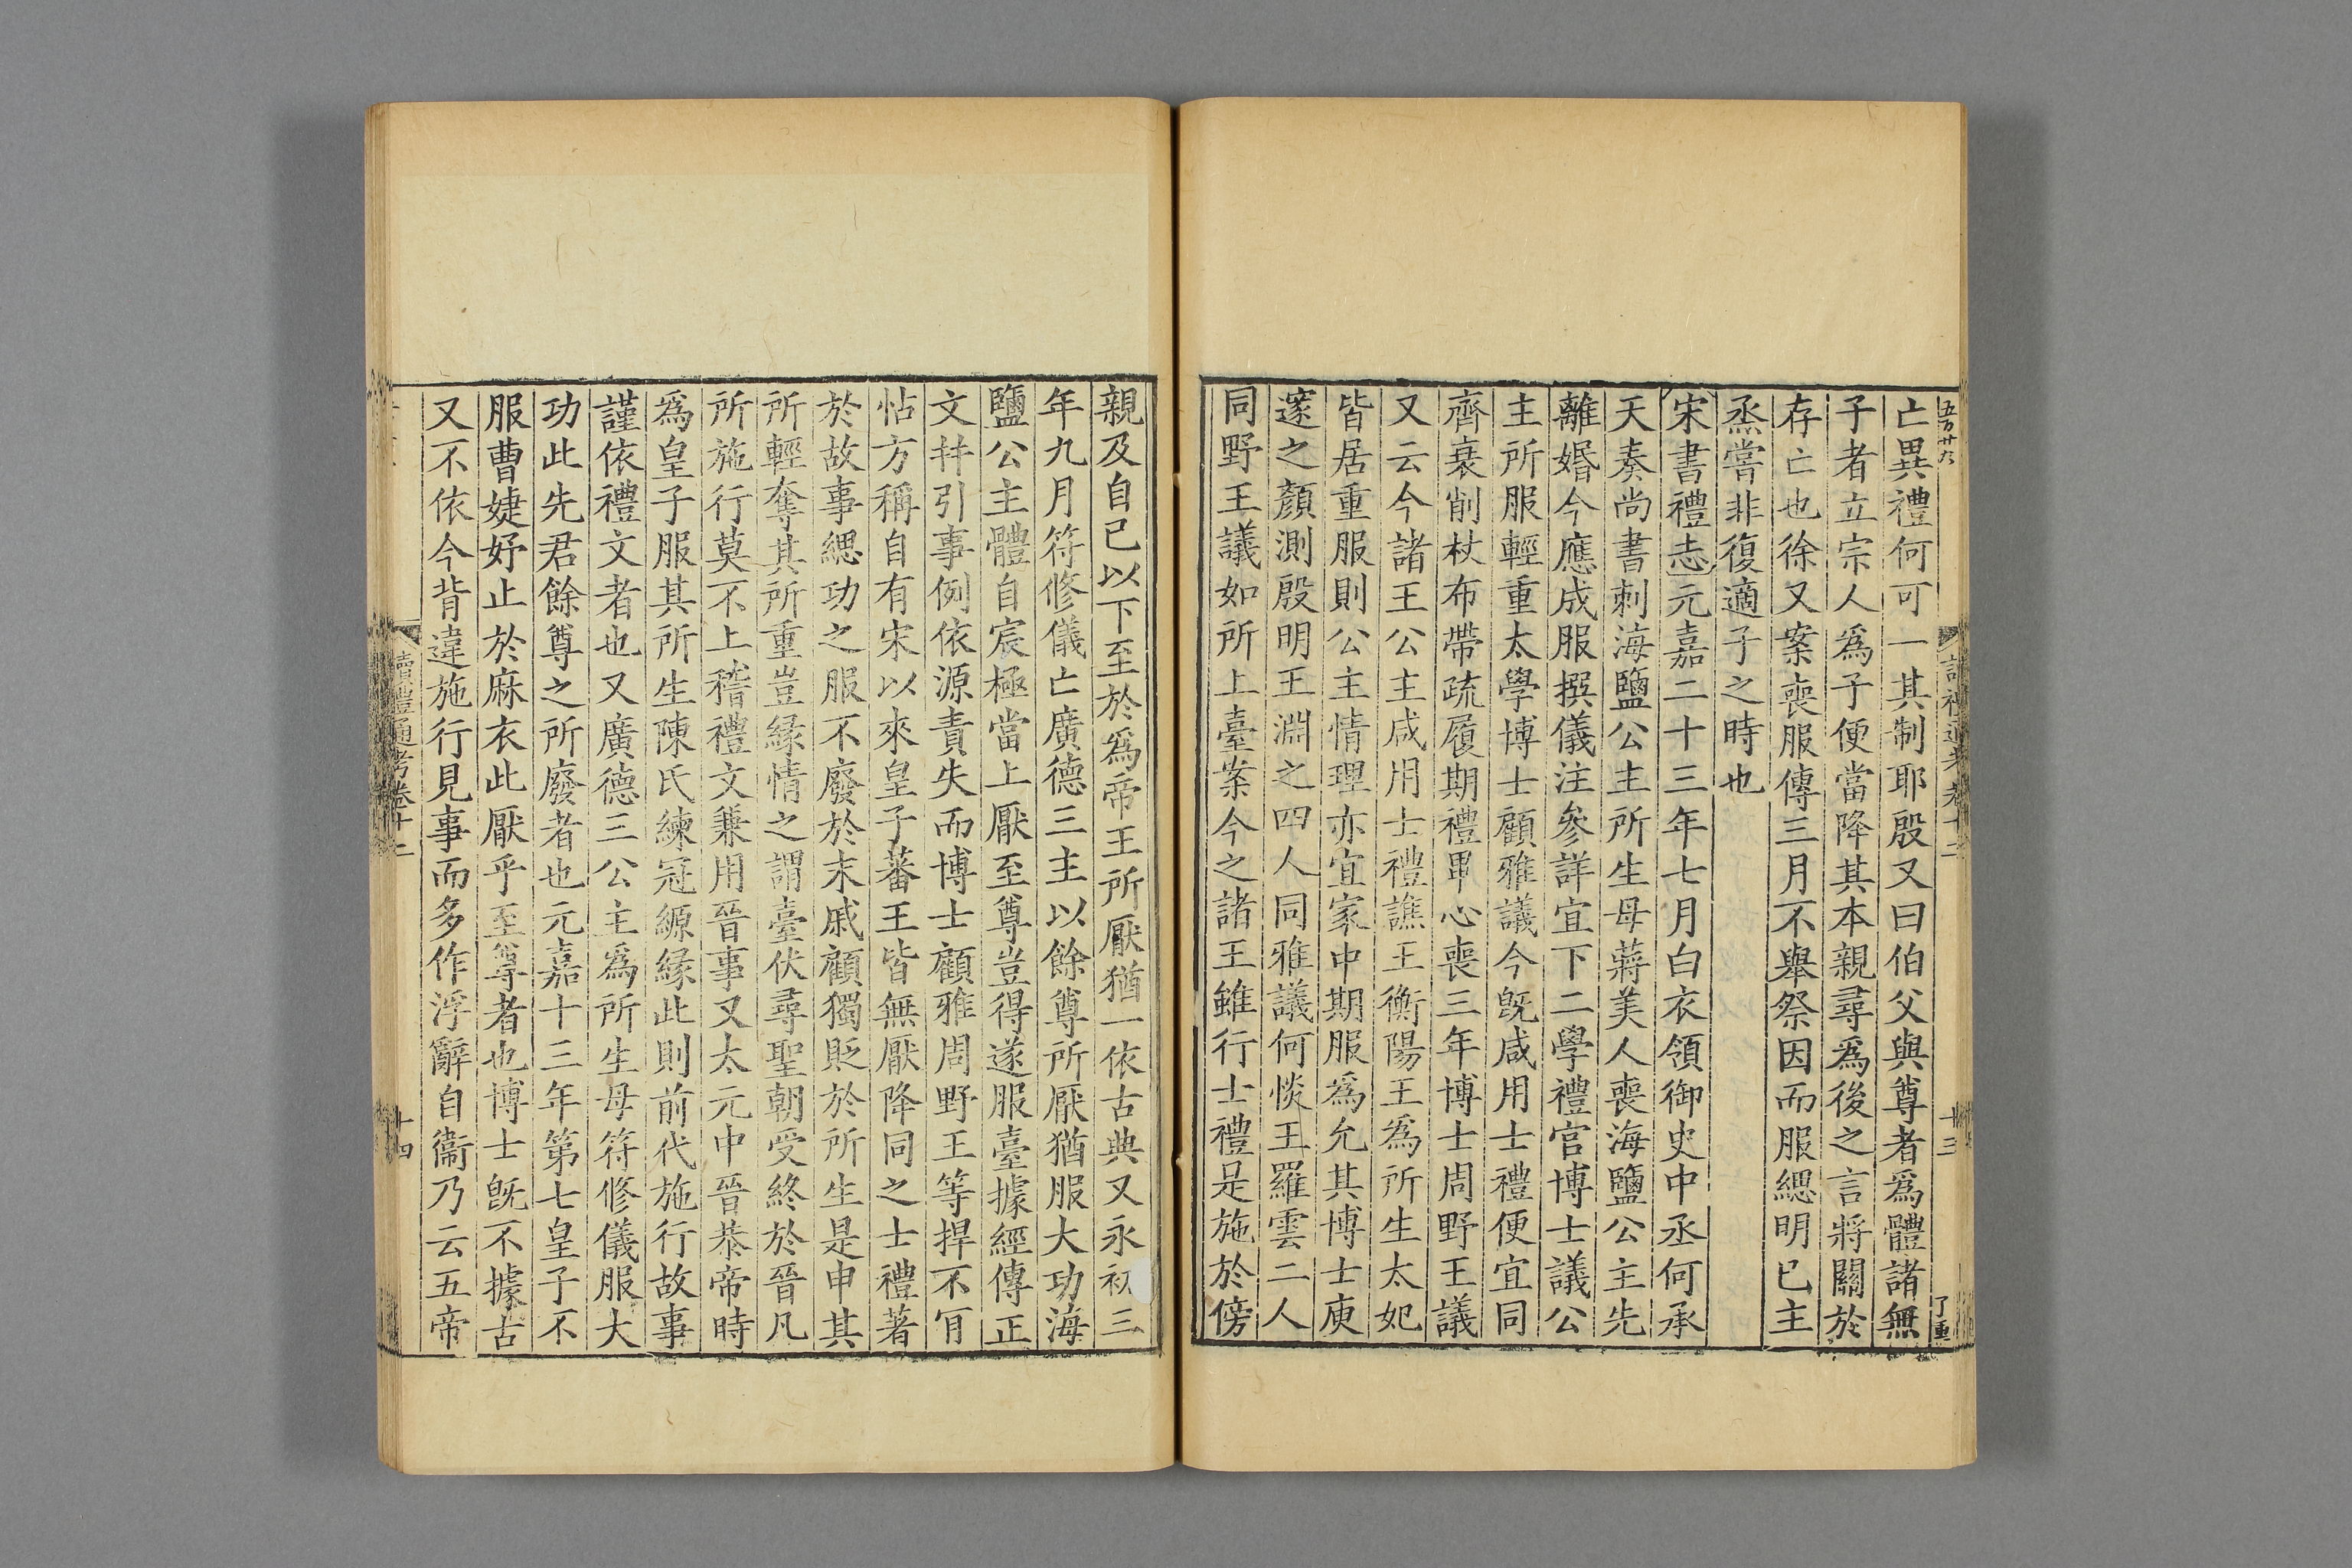 亡異禮何可一其制耶殷又曰伯父與尊者爲體諸無
子者立宗人爲子便當降其本親尋爲後之言將關於
存亡也徐又案喪服傳三月不舉祭因而服緦明已主
烝嘗非復適子之時也
宋書禮志元嘉二十三年七月白衣領御史中丞何承
天奏尚書刺海鹽公主所生母蔣美人喪海鹽公主先
離婚今應成服撰儀注參詳宜下二學禮官博士議公
主所服輕重太學博士顧雅議今旣咸用士禮便宜同
齊衰削杖布帶疏履期禮畢心喪三年博士周野王議
又云今諸王公主咸用士禮譙王衡陽王爲所生太妃
皆居重服則公主情理亦宜家中期服爲允其博士庾
邃之顏測殷明王淵之四人同雅議何惔王羅雲二人
同野王議如所上臺案今之諸王雖行士禮是施於傍
親及自己以下至於爲帝王所厭猶一依古典又永初三
年九月符修儀亡廣德三主以餘尊所厭猶服大功海
鹽公主體自宸極當上厭至尊豈得遂服臺據經傳正
文幷引事例依源責失而博士顧雅周野王等捍不肎
怗方稱自有宋以來皇子蕃王皆無厭降同之士禮著
於故事緦功之服不廢於末戚顧獨貶於所生是申其
所輕奪其所重豈緣情之謂臺伏尋聖朝受終於晉凡
所施行莫不上稽禮文兼用晉事又太元中晉恭帝時
爲皇子服其所生陳氏練冠縓緣此則前代施行故事
謹依禮文者也又廣德三公主爲所生母符修儀服大
功此先君餘尊之所廢者也元嘉十三年第七皇子不
服曹婕妤止於麻衣此厭乎至尊者也博士旣不據古
又不依今背違施行見事而多作浮辭自衞乃云五帝
讀禮通考卷十二
十四